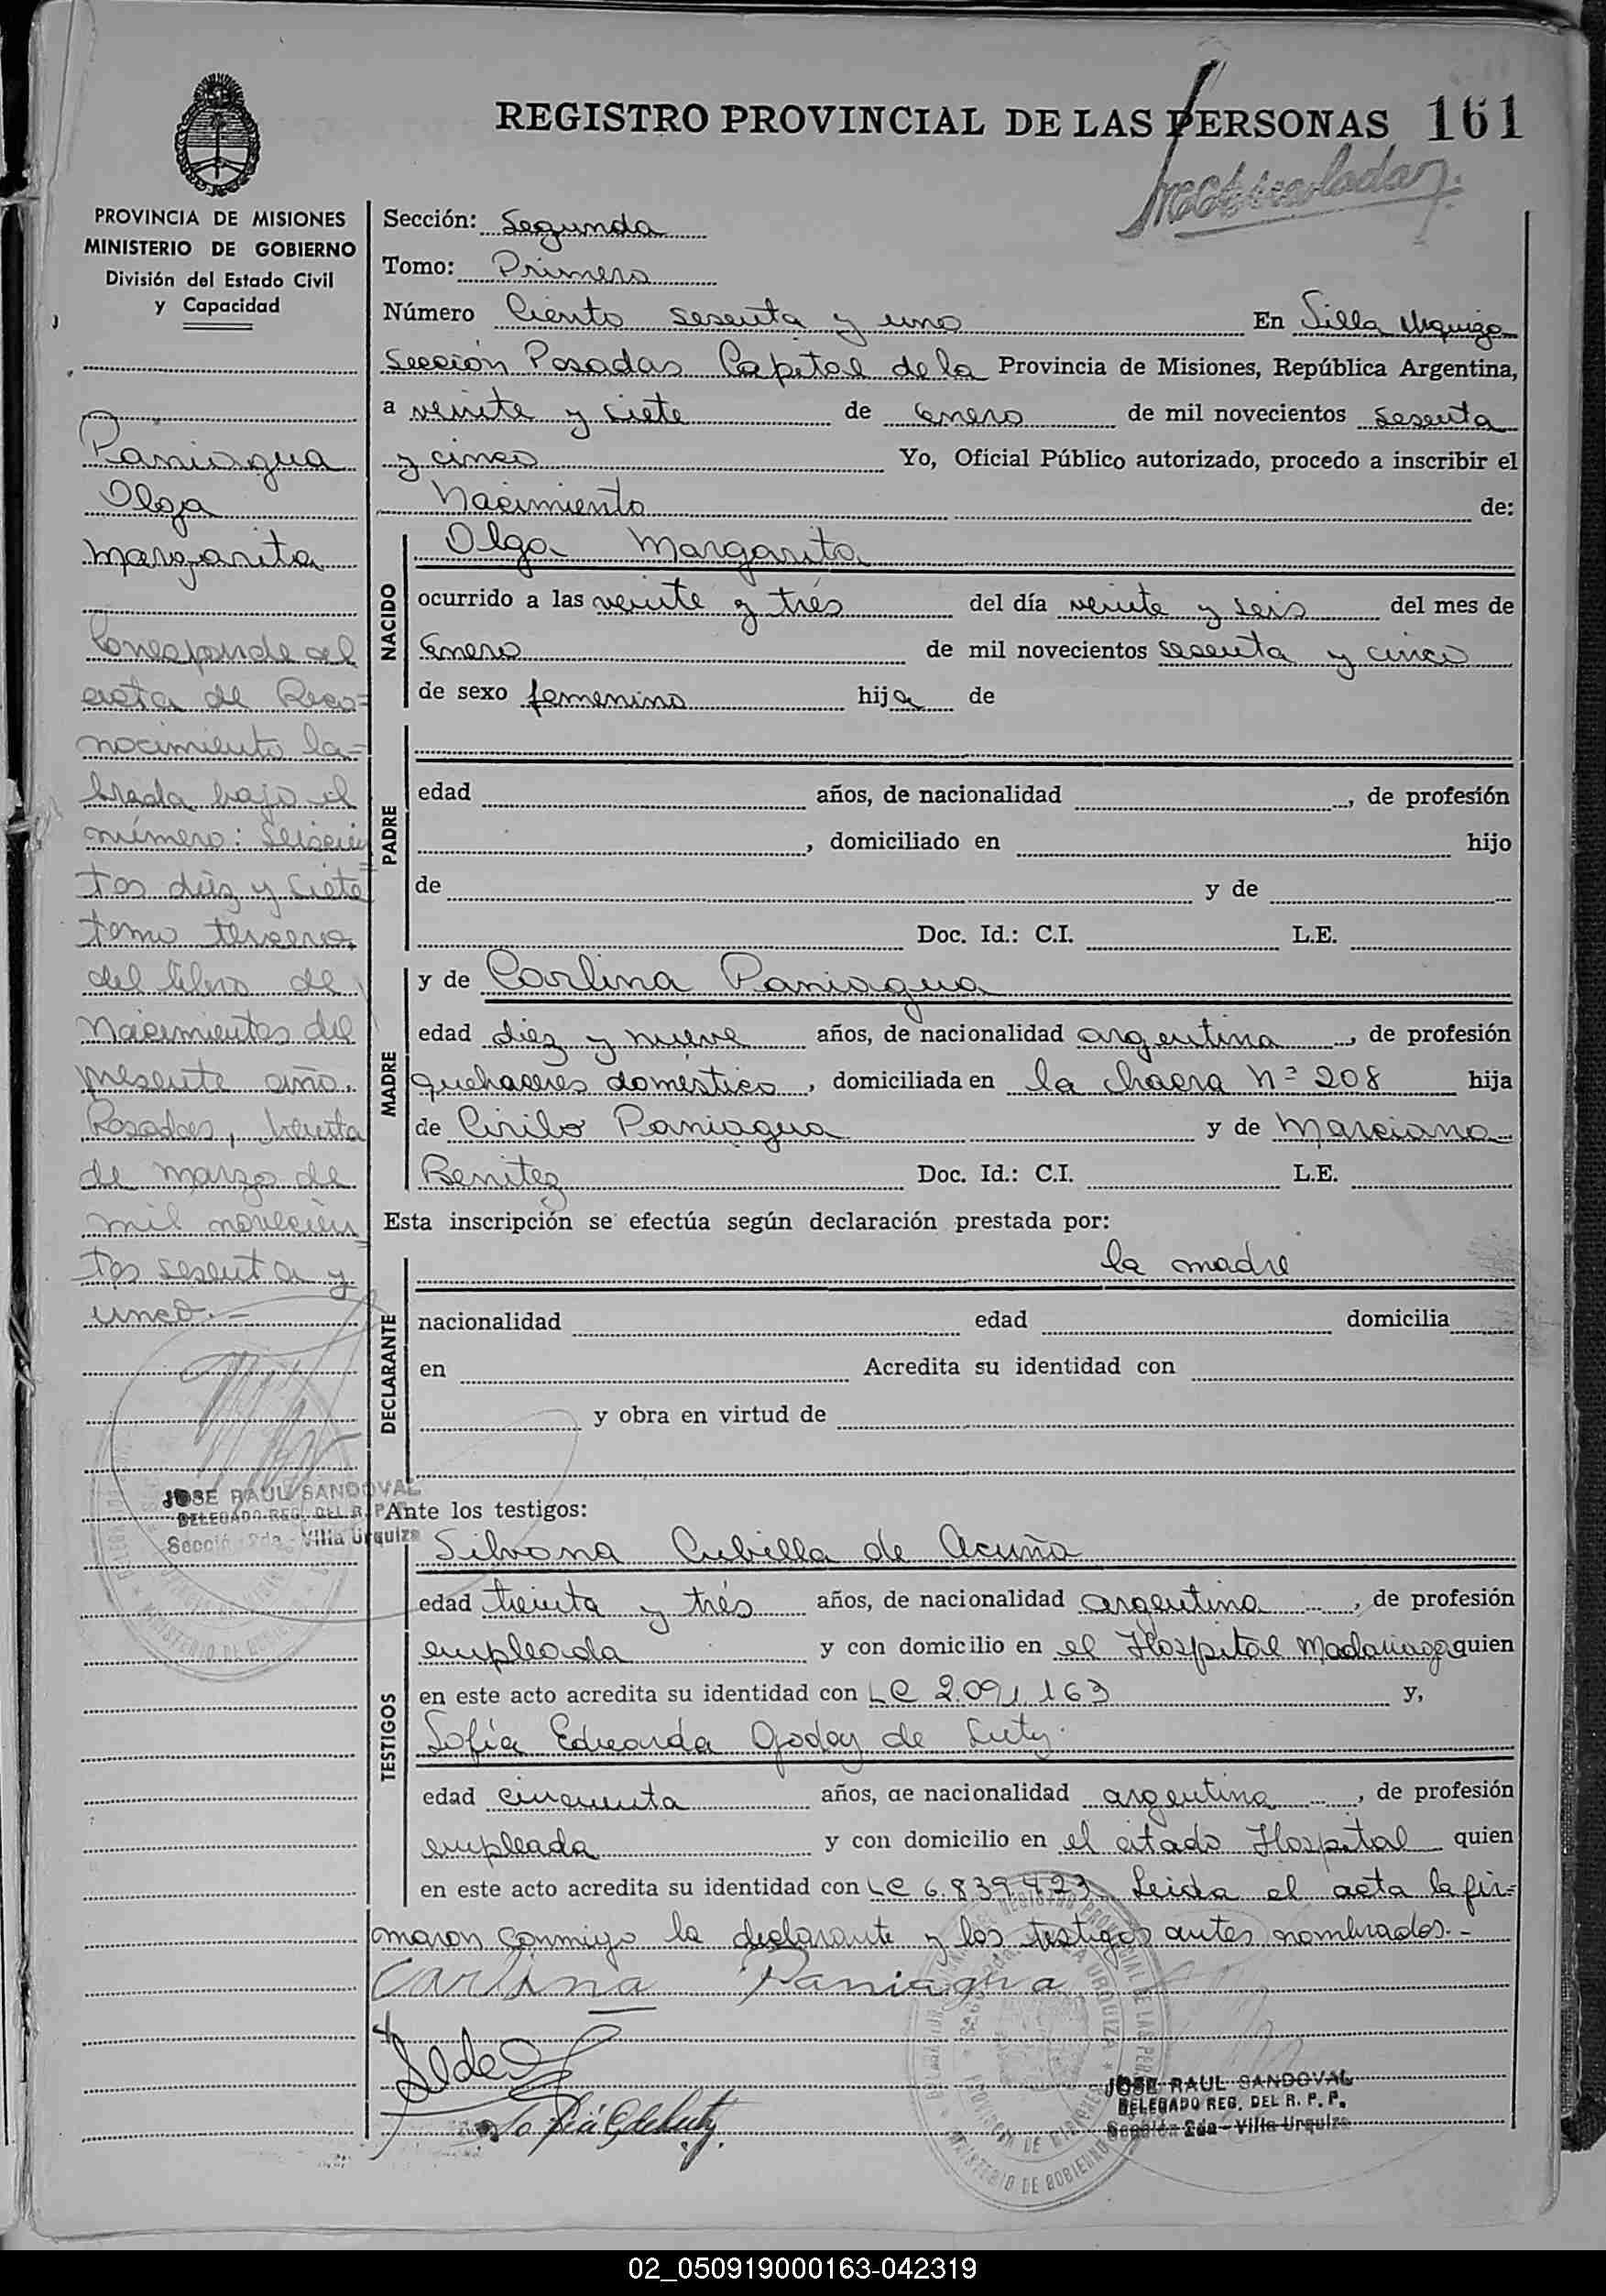 REGISTRO PROVINCIAL DE LAS PERSONAS 161
PROVINCIA DE MISIONES
MINISTERIO DE GOBIERNO
División del Estado Civil
y Capacidad
Paniagua
Olga
Margarita
Corresponde al
acta de Reco=
nocimiento la=
brada bajo el
número: Seiscien
tos diez y siete
tomo tercero,
del libro de
Nacimientos del
presente año.
Posadas, treinta
de marzo de
mil novecien
tos sesenta y
unco.-
JOSE RAUL SANDOVAL
DELEGADO REG. DEL R. P. P.
Sección 2da - Villa Urquiza
Sección: Segunda
Tomo: Primero
Número Ciento sesenta y uno En Villa Urquiza
Sección Posadas Capital de la Provincia de Misiones, República Argentina,
a veinte y siete de Enero de mil novecientos sesenta
y cinco Yo, Oficial Público autorizado, procedo a inscribir el
Nacimiento de:
NACIDO
Olga Margarita
ocurrido a las veinte y tres del día veinte y seis del mes de
Enero de mil novecientos sesenta y cinco
de sexo femenino hija de
PADRE
edad años, de nacionalidad , de profesión
, domiciliado en hijo
de y de
Doc. Id.: C.I. L.E.
MADRE
y de Carlina Paniagua
edad diez y nueve años, de nacionalidad argentina , de profesión
quehaceres domestico , domiciliada en la chacra Nº 208 hija
de Cirilo Paniagua y de Marciana
Benitez Doc. Id.: C.I. L.E.
Esta inscripción se efectúa según declaración prestada por:
DECLARANTE
la madre
nacionalidad edad domicilia
en Acredita su identidad con
y obra en virtud de
Ante los testigos:
TESTIGOS
Silvana Cubilla de Acuña
edad treinta y tres años, de nacionalidad argentina , de profesión
empleada y con domicilio en el Hospital Madariaga quien
en este acto acredita su identidad con LC 2.091.163 y,
Sofía Eduarda Godoy de
edad cincuenta años, de nacionalidad argentina , de profesión
empleada y con domicilio en el citado Hospital quien
en este acto acredita su identidad con LC 6.839.423 Leída el acta la fir=
maron conmigo la declarante y los testigos antes nombrados.-
Carlina Paniagua
JOSE RAUL SANDOVAL
DELEGADO REG. DEL R. P. P.
Sección 2da - Villa Urquiza
02_050919000163-042319